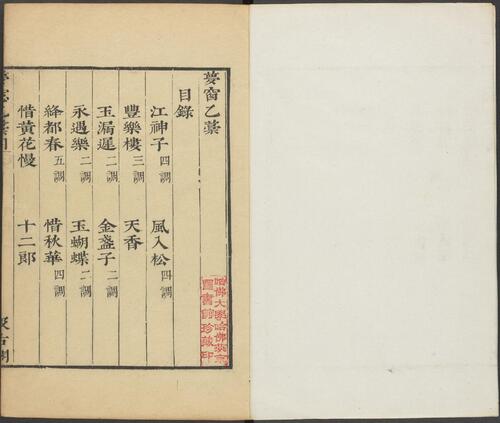 夢窗乙藁
目錄
江神子 四調 風入松 四調
豐樂樓 三調 天香
玉漏遲 二調 金盞子 二調
永遇樂 二調 玉蝴蝶 二調
絳都春 五調 惜秋華 四調
惜黃花慢 十二郎
汲古閣
哈佛大學哈佛燕京
圖書館珍藏印